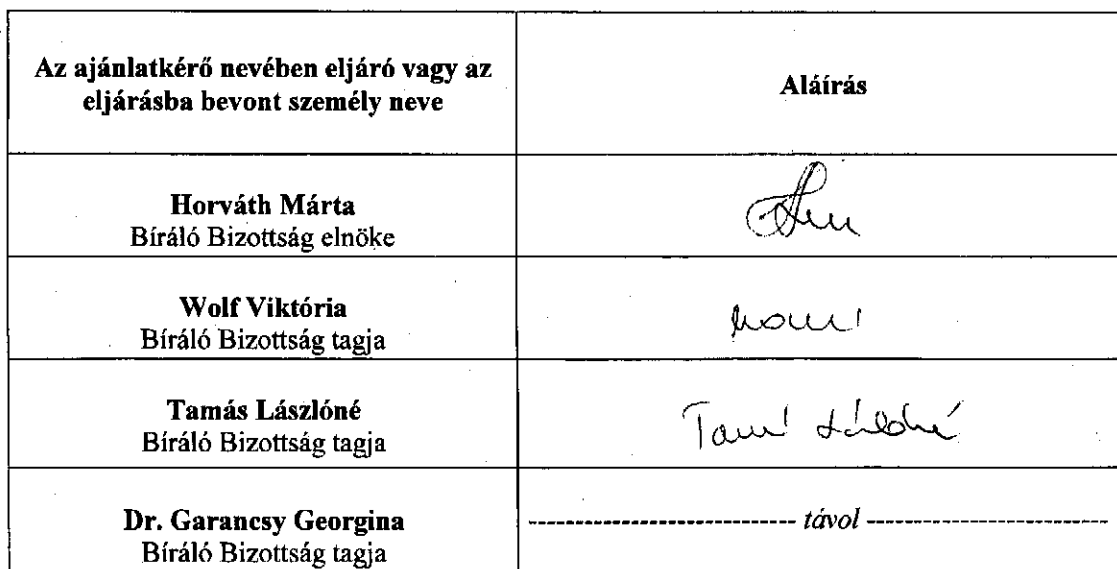 Az ajánlatkérő nevében eljáró vagy az
eljárásba bevont személy neve
Aláírás
Horváth Márta
Bíráló Bizottság elnöke
Wolf Viktória
Bíráló Bizottság tagja
Tamás Lászlóné
Bíráló Bizottság tagja
Dr. Garancsy Georgina
Bíráló Bizottság tagja
---------------------------- távol -------------------------